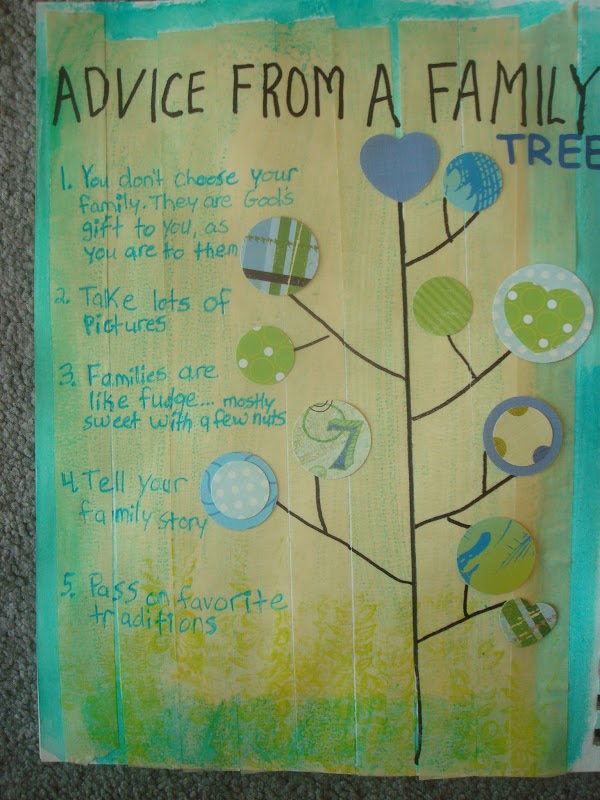 ADVICE FROM A FAMILY
TREE
1. You don't choose your
family. They are God's
gift to you, as
you are to them
2. Take lots of
pictures
3. Families are
like fudge... mostly
sweet with a few nuts
4. Tell your
family story
5. Pass on favorite
traditions
7